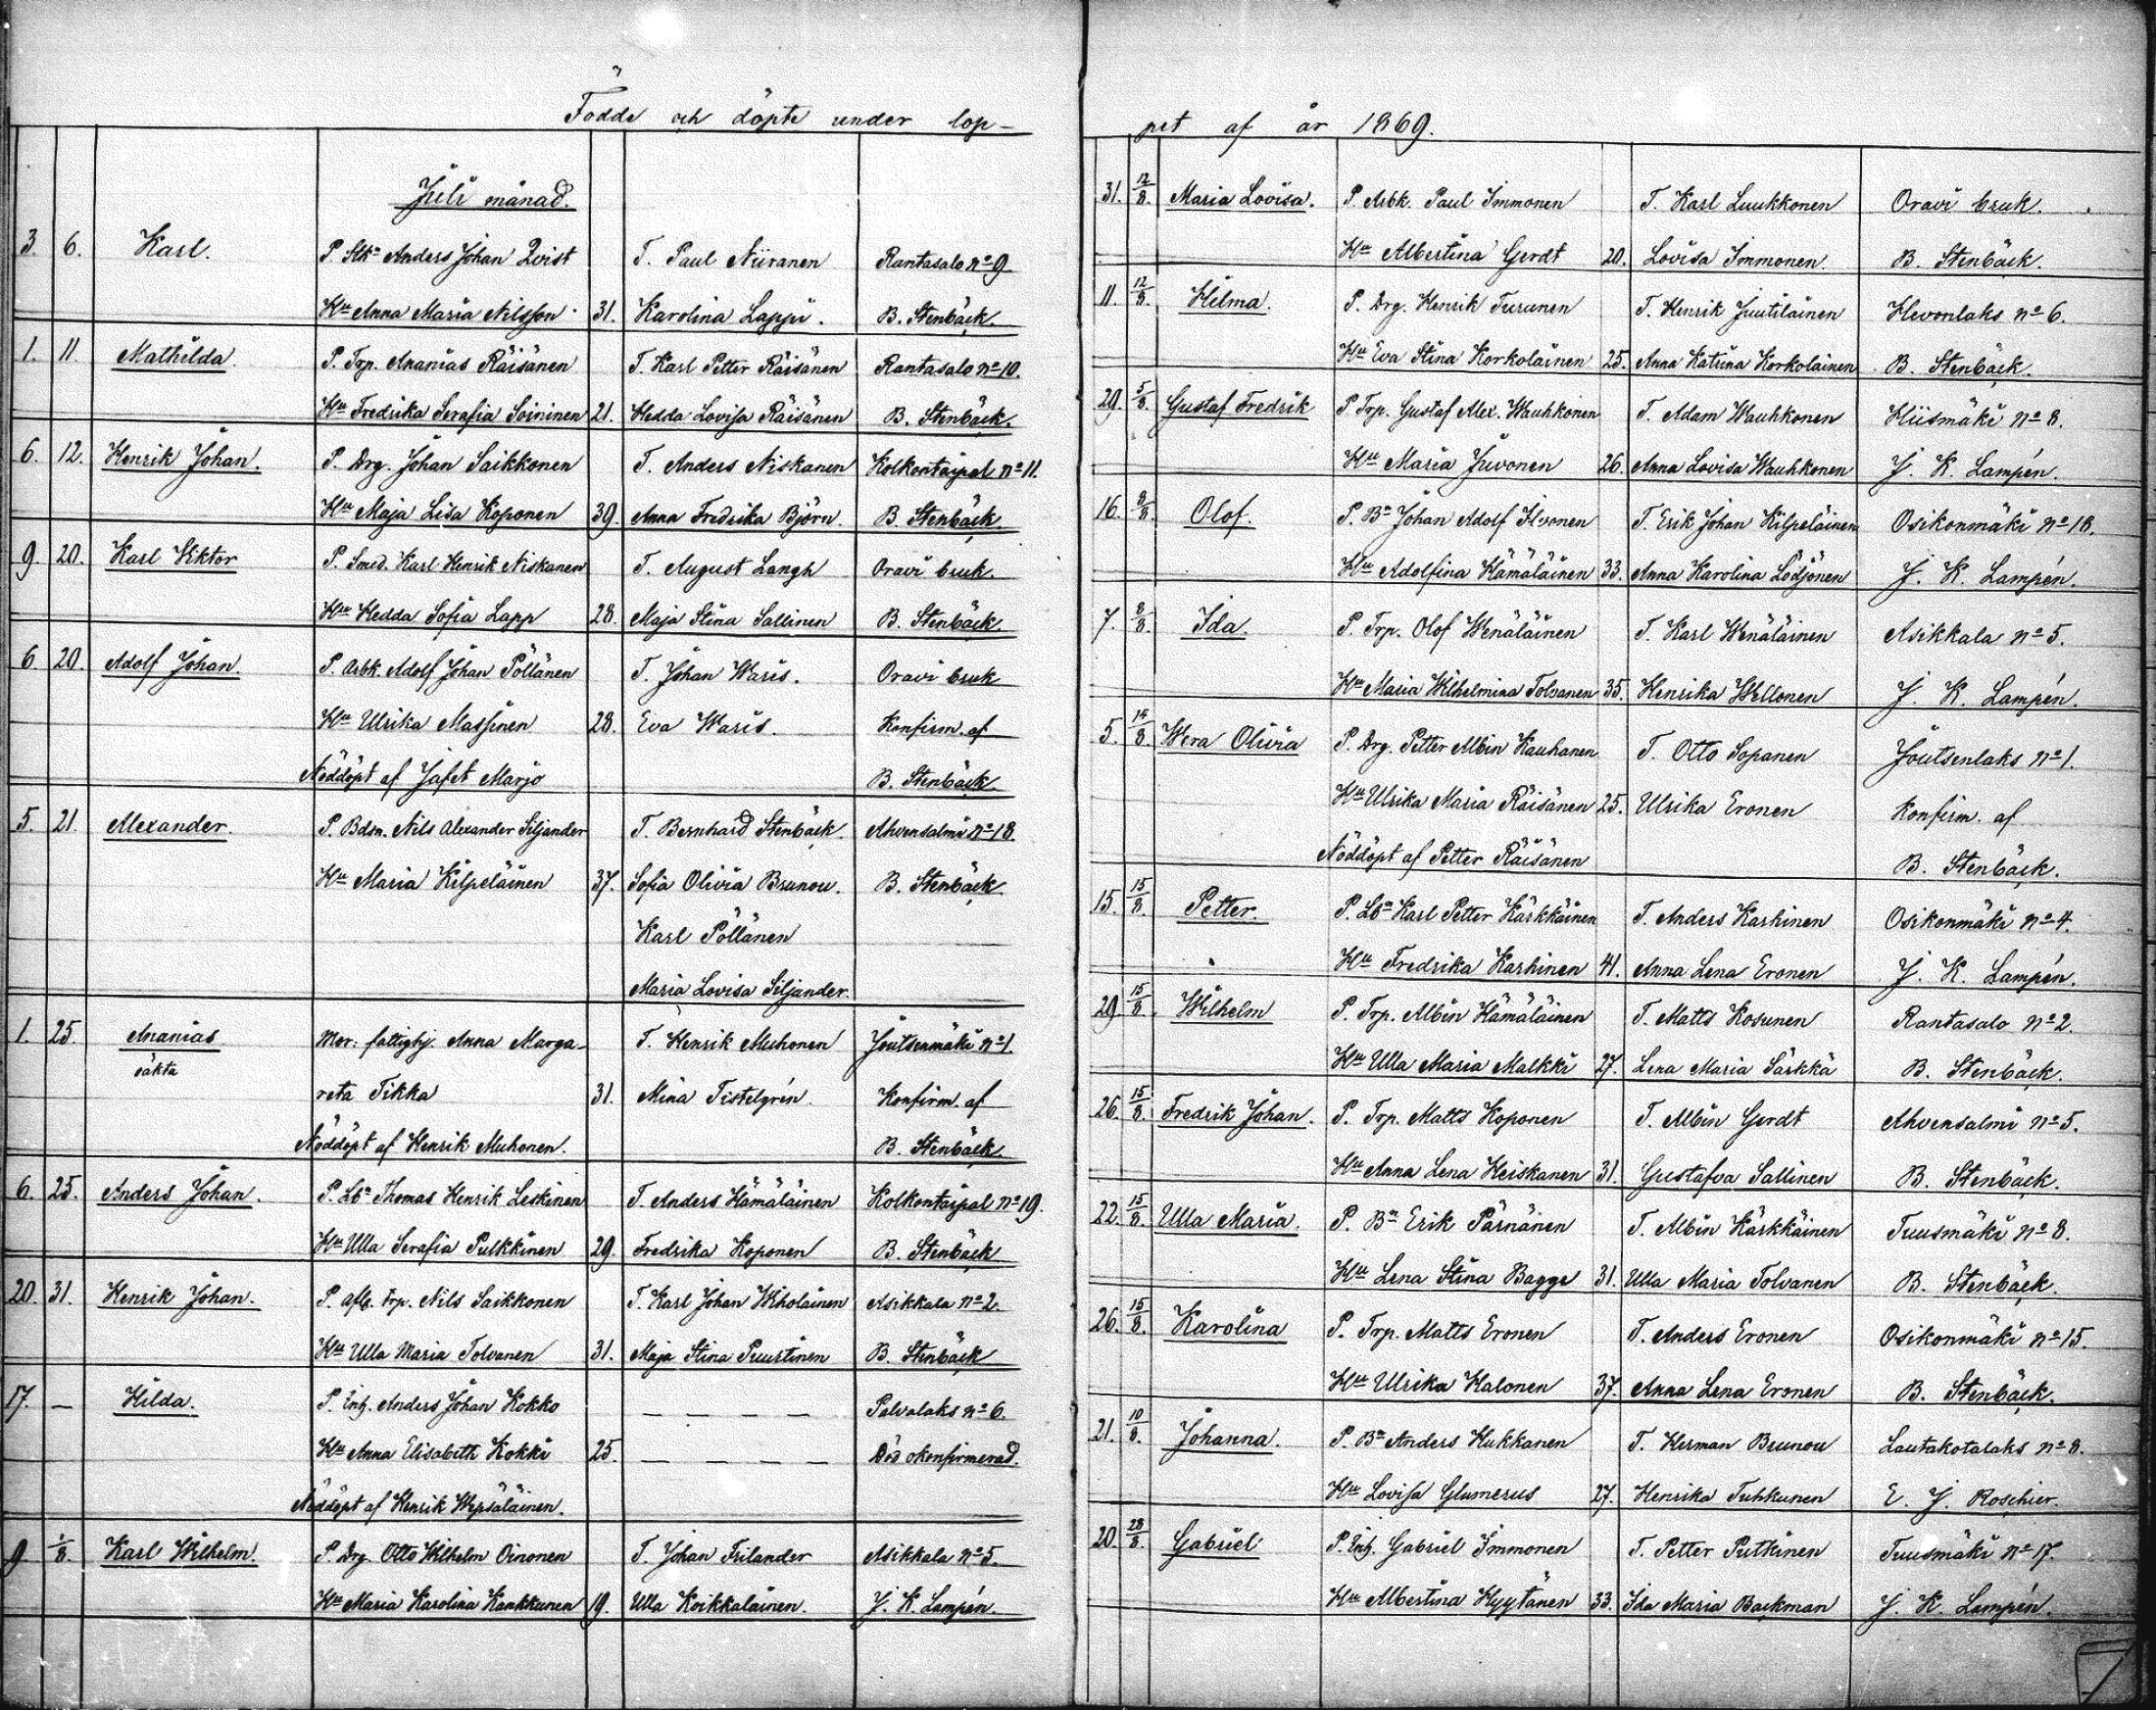 Födde och döpte under lop-
Juli månad.
3. 6. Karl. P. Anders Johan Qvist T. Paul Niiranen Rantasalo No 9
Hu Anna Maria Nilsson 31. Karolina Lappi. B. Stenbäck.
1. 11. Mathilda. P. Trp. Ananias Räisänen T. Karl Petter Räisänen Rantasalo No 10.
Hu Fredrika Serafia Soininen 21. Hedda Lovisa Räisänen B. Stenbäck.
6. 12. Henrik Johan. P. Drg. Johan Saikkonen T. Anders Niskanen Kolkontaipal No 11.
Hu Maja Lisa Koponen 39. Anna Fredrika Björn. B. Stenbäck
9. 20. Karl Viktor P. Smed. Karl Henrik Niskanen T. August Langh Oravi bruk.
Hu Hedda Sofia Lapp 28. Maja Stina Sallinen B. Stenbäck.
6. 20. Adolf Johan. P. Arbk. Adolf Johan Pöllänen T. Johan Waris. Oravi bruk
Hu Ulrika Massinen 28. Eva Waris. Konfirm. af
Nöddöpt af Jafet Marjo B. Stenbäck.
5. 21. Alexander. P. Bdsn. Nils Alexander Siljander T. Bernhard Stenbäck. Ahvensalmi No 18.
Hu Maria Kilpeläinen 37. Sofia Olivia Brunou. B. Stenbäck.
Karl Pöllänen
Maria Lovisa Siljander.
1. 25. Ananias Mor: fattighj. Anna Marga- T. Henrik Muhonen Joutsenmäki No 1.
oäkta
reta Tikka 31. Mina Tistelgrén. Konfirm. af
Nöddöpt af Henrik Muhonen. B. Stenbäck
6. 25. Anders Johan. P. Lbn Thomas Henrik Leskinen T. Anders Hämäläinen Kolkontaipal No 19.
Hu Ulla Serafia Pulkkinen 29. Fredrika Koponen B. Stenbäck
20. 31. Henrik Johan. P. afg. Trp. Nils Saikkonen T. Karl Johan Wiholainen Asikkala No 2.
Hu Ulla Maria Tolvanen 31. Maja Stina Puustinen B. Stenbäck
17. — Hilda. P. Inh. Anders Johan Kokko — — — — Palvalaks No 6.
Hu Anna Elisabeth Kokki 25. — — — — Död okonfirmerad.
Nöddöpt af Henrik Wepsäläinen.
9 1/8. Karl Wilhelm. P. Drg. Otto Wilhelm Oinonen T. Johan Frilander Asikkala No 5.
Hu Maria Karolina Kankkunen 19. Ulla Koikkalainen. J. K. Lampén.
pet af år 1869.
31. 12/8. Maria Lovisa. P. Arbk. Paul Immonen T. Karl Luukkonen Oravi bruk.
Hu Albertina Gerdt 20. Lovisa Immonen. B. Stenbäck.
11. 12/8. Hilma. P. Drg. Henrik Turunen T. Henrik Juutilainen Hevonlaks No 6.
Hu Eva Stina Korkolainen 25. Anna Katrina Korkolainen B. Stenbäck.
29. 5/8. Gustaf Fredrik P. Trp. Gustaf Alex. Wauhkonen T. Adam Wauhkonen Hiismäki No 8.
Hu Maria Juvonen 26. Anna Lovisa Wauhkonen J. K. Lampén.
16. 8/8. Olof. P. Bn Johan Adolf Ilvonen T. Erik Johan Kilpeläinen Osikonmäki No 18.
Hu Adolfina Hämäläinen 33. Anna Karolina Lödjönen J. K. Lampén.
7. 8/8. Ida. P. Trp. Olof Wenäläinen T. Karl Wenäläinen Asikkala No 5.
Hu Maria Wilhelmina Tolvanen 35. Henrika Wellonen J. K. Lampén.
5. 14/8. Wera Olivia P. Drg. Petter Albin Kauhanen T. Otto Sopanen Joutsenlaks No 1.
Hu Ulrika Maria Räisänen 25. Ulrika Eronen Konfirm. af
Nöddöpt af Petter Räisänen B. Stenbäck.
15. 15/8. Petter. P. Lbn Karl Petter Kärkkäinen T. Anders Karhinen Osikonmäki No 4.
Hu Fredrika Karhinen 41. Anna Lena Eronen J. K. Lampén.
29. 15/8. Wilhelm P. Trp. Albin Hämäläinen T. Matts Kosunen Rantasalo No 2.
Hu Ulla Maria Malkki 27. Lena Maria Särkkä B. Stenbäck.
26. 15/8. Fredrik Johan. P. Trp. Matts Koponen T. Albin Gerdt Ahvensalmi No 5.
Hu Anna Lena Heiskanen 31. Gustafva Sallinen B. Stenbäck.
22. 15/8. Ulla Maria. P. Bn Erik Pärnänen T. Albin Kärkkäinen Tuusmäki No 8.
Hu Lena Stina Bagge 31. Ulla Maria Tolvanen B. Stenbäck.
26. 15/8. Karolina P. Trp. Matts Eronen T. Anders Eronen Osikonmäki No 15.
Hu Ulrika Halonen 37. Anna Lena Eronen B. Stenbäck.
21. 10/8. Johanna. P. Bn Anders Hukkanen T. Herman Brunou Lautakotalaks No 8.
Hu Lovisa Glumerus 27. Henrika Tuhkunen E. J. Roschier.
20. 28/8. Gabriel P. Inh. Gabriel Immonen T. Petter Putkinen Tuusmäki No 17.
Hu Albertina Hyytänen 33. Ida Maria Backman J. K. Lampén.